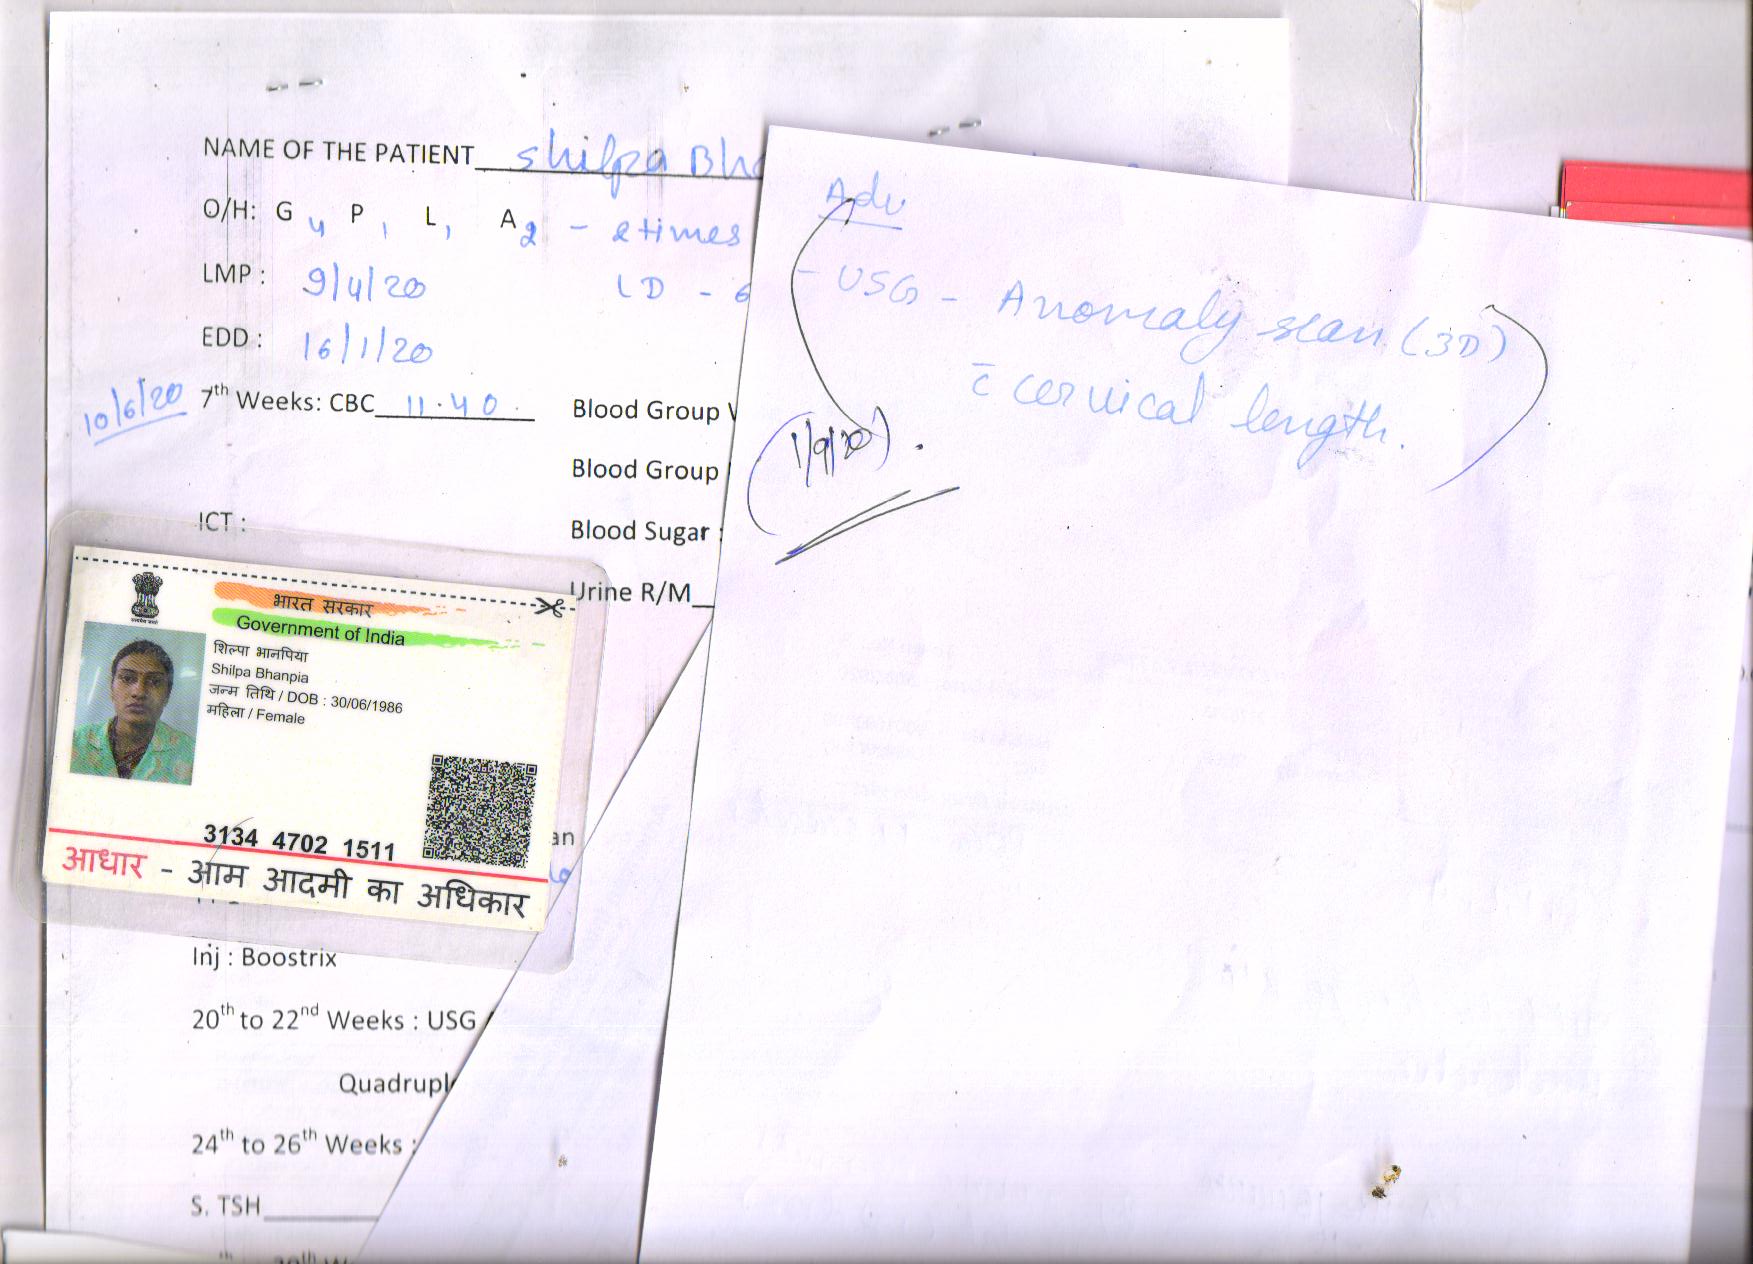 NAME OF THE PATIENT shilpa Bha
O/H: G 4 P 1 L 1 A 2 - 2 times
LMP : 9/4/20 LD - 6
EDD : 16/1/20
10/6/20 7th Weeks: CBC 11.40 Blood Group
Blood Group
ICT : Blood Sugar :
Urine R/M
भारत सरकार
Government of India
शिल्पा भानपिया
Shilpa Bhanpia
जन्म तिथि / DOB : 30/06/1986
महिला / Female
3134 4702 1511
आधार - आम आदमी का अधिकार
Inj : Boostrix
20th to 22nd Weeks : USG
Quadruple
24th to 26th Weeks :
S. TSH
Adv
- USG - Anomaly scan (3D)
c̄ cervical length.
(1/9/20).